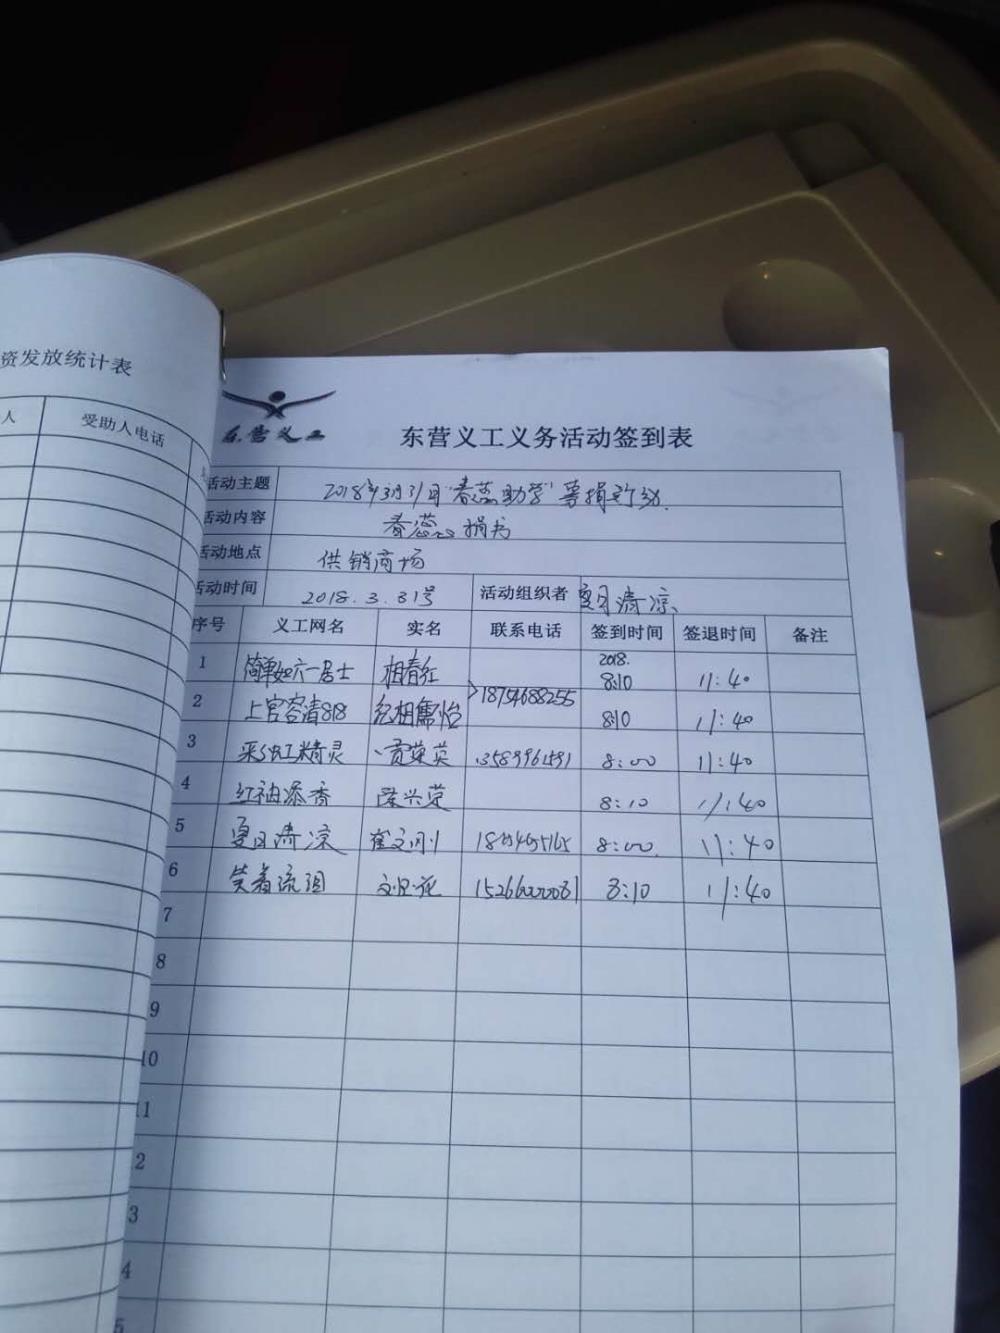 资发放统计表
人 受助人电话
东营义工
东营义工义务活动签到表
活动主题 2018年3月31日"春蕊助学"募捐活动.
活动内容 春蕊 捐书
活动地点 供销商场
活动时间 2018.3.31号 活动组织者 夏日清凉
序号 义工网名 实名 联系电话 签到时间 签退时间 备注
1 简单如六一居士 相春红 18754688255 2018. 8:10 11:40
2 上官容清818 纪相儒怡 8:10 11:40
3 采红精灵 贡荣英 8:00 11:40
4 红袖添香 陈兴荣 8:10 11:40
5 夏日清凉 崔文刚 8:00 11:40
6 笑着流泪 8:10 11:40
7
8
9
10
11
2
3
4
5